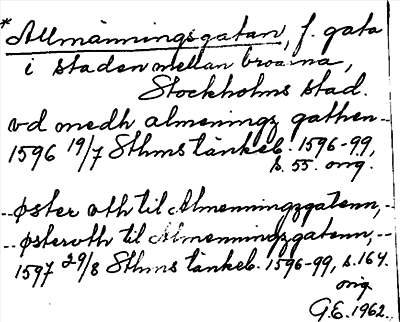 * Allmänningsgatan, f. gata
i staden mellan broarna,
Stockholms stad.
vd medh almeningz gathen --
1596 19/7 Sthms tänkeb. 1596-99,
s. 55. orig.
-- øster vth til Almenningzgatenn, --
-- østervth til Almenningzgatenn, --
1597 29/8 Sthms tänkeb. 1596-99, s. 164.
orig.
G.E. 1962.